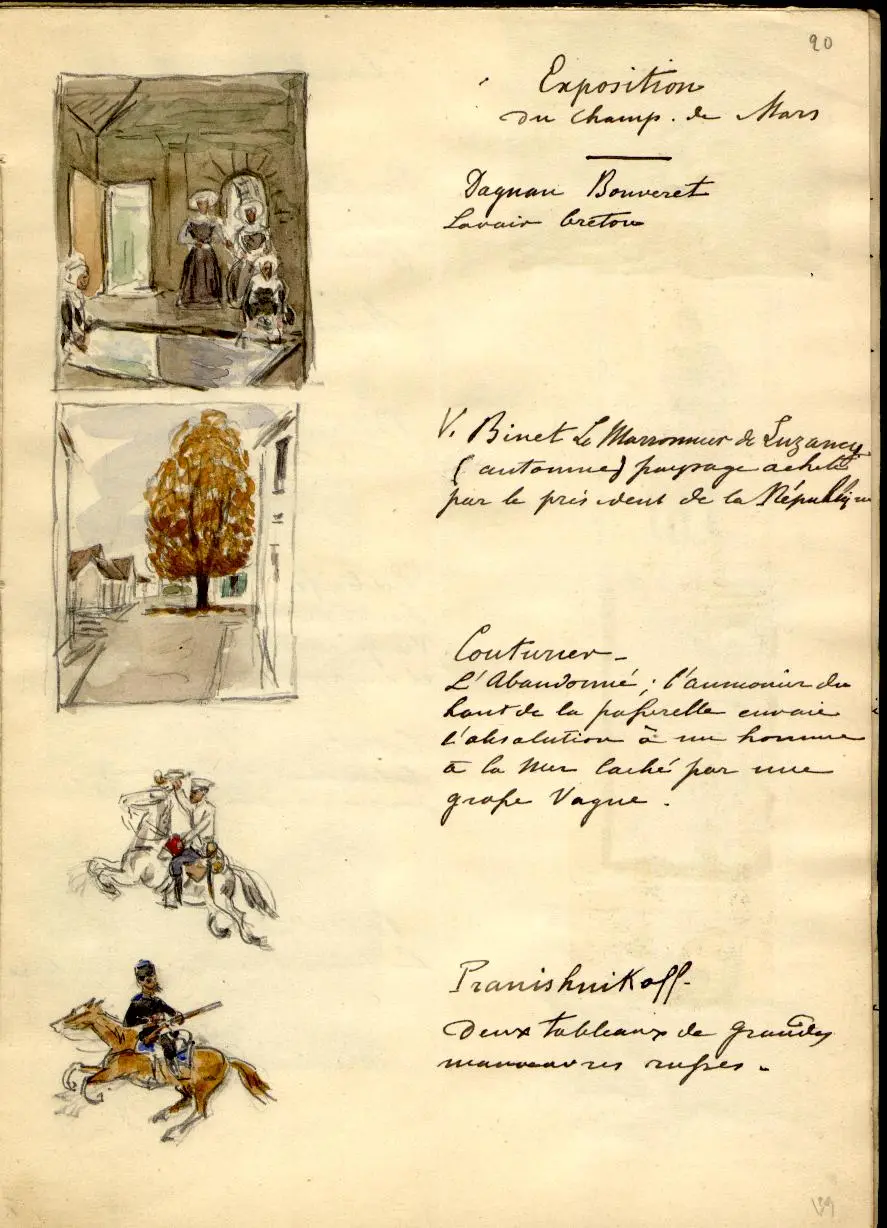 20
Exposition
du Champ. de Mars
Dagnan Bouveret
Lavoir breton
V. Binet Le Marronnier de Luzancy
(automne) paysage acheté
par le président de la République
Couturier -
L'Abandonné ; l'aumonier du
haut de la passerelle envoie
l'absolution à un homme
à la mer laché par une
grosse Vague .
Pranishnikoff-
Deux tableaux de grandes
manoeuvres russes -